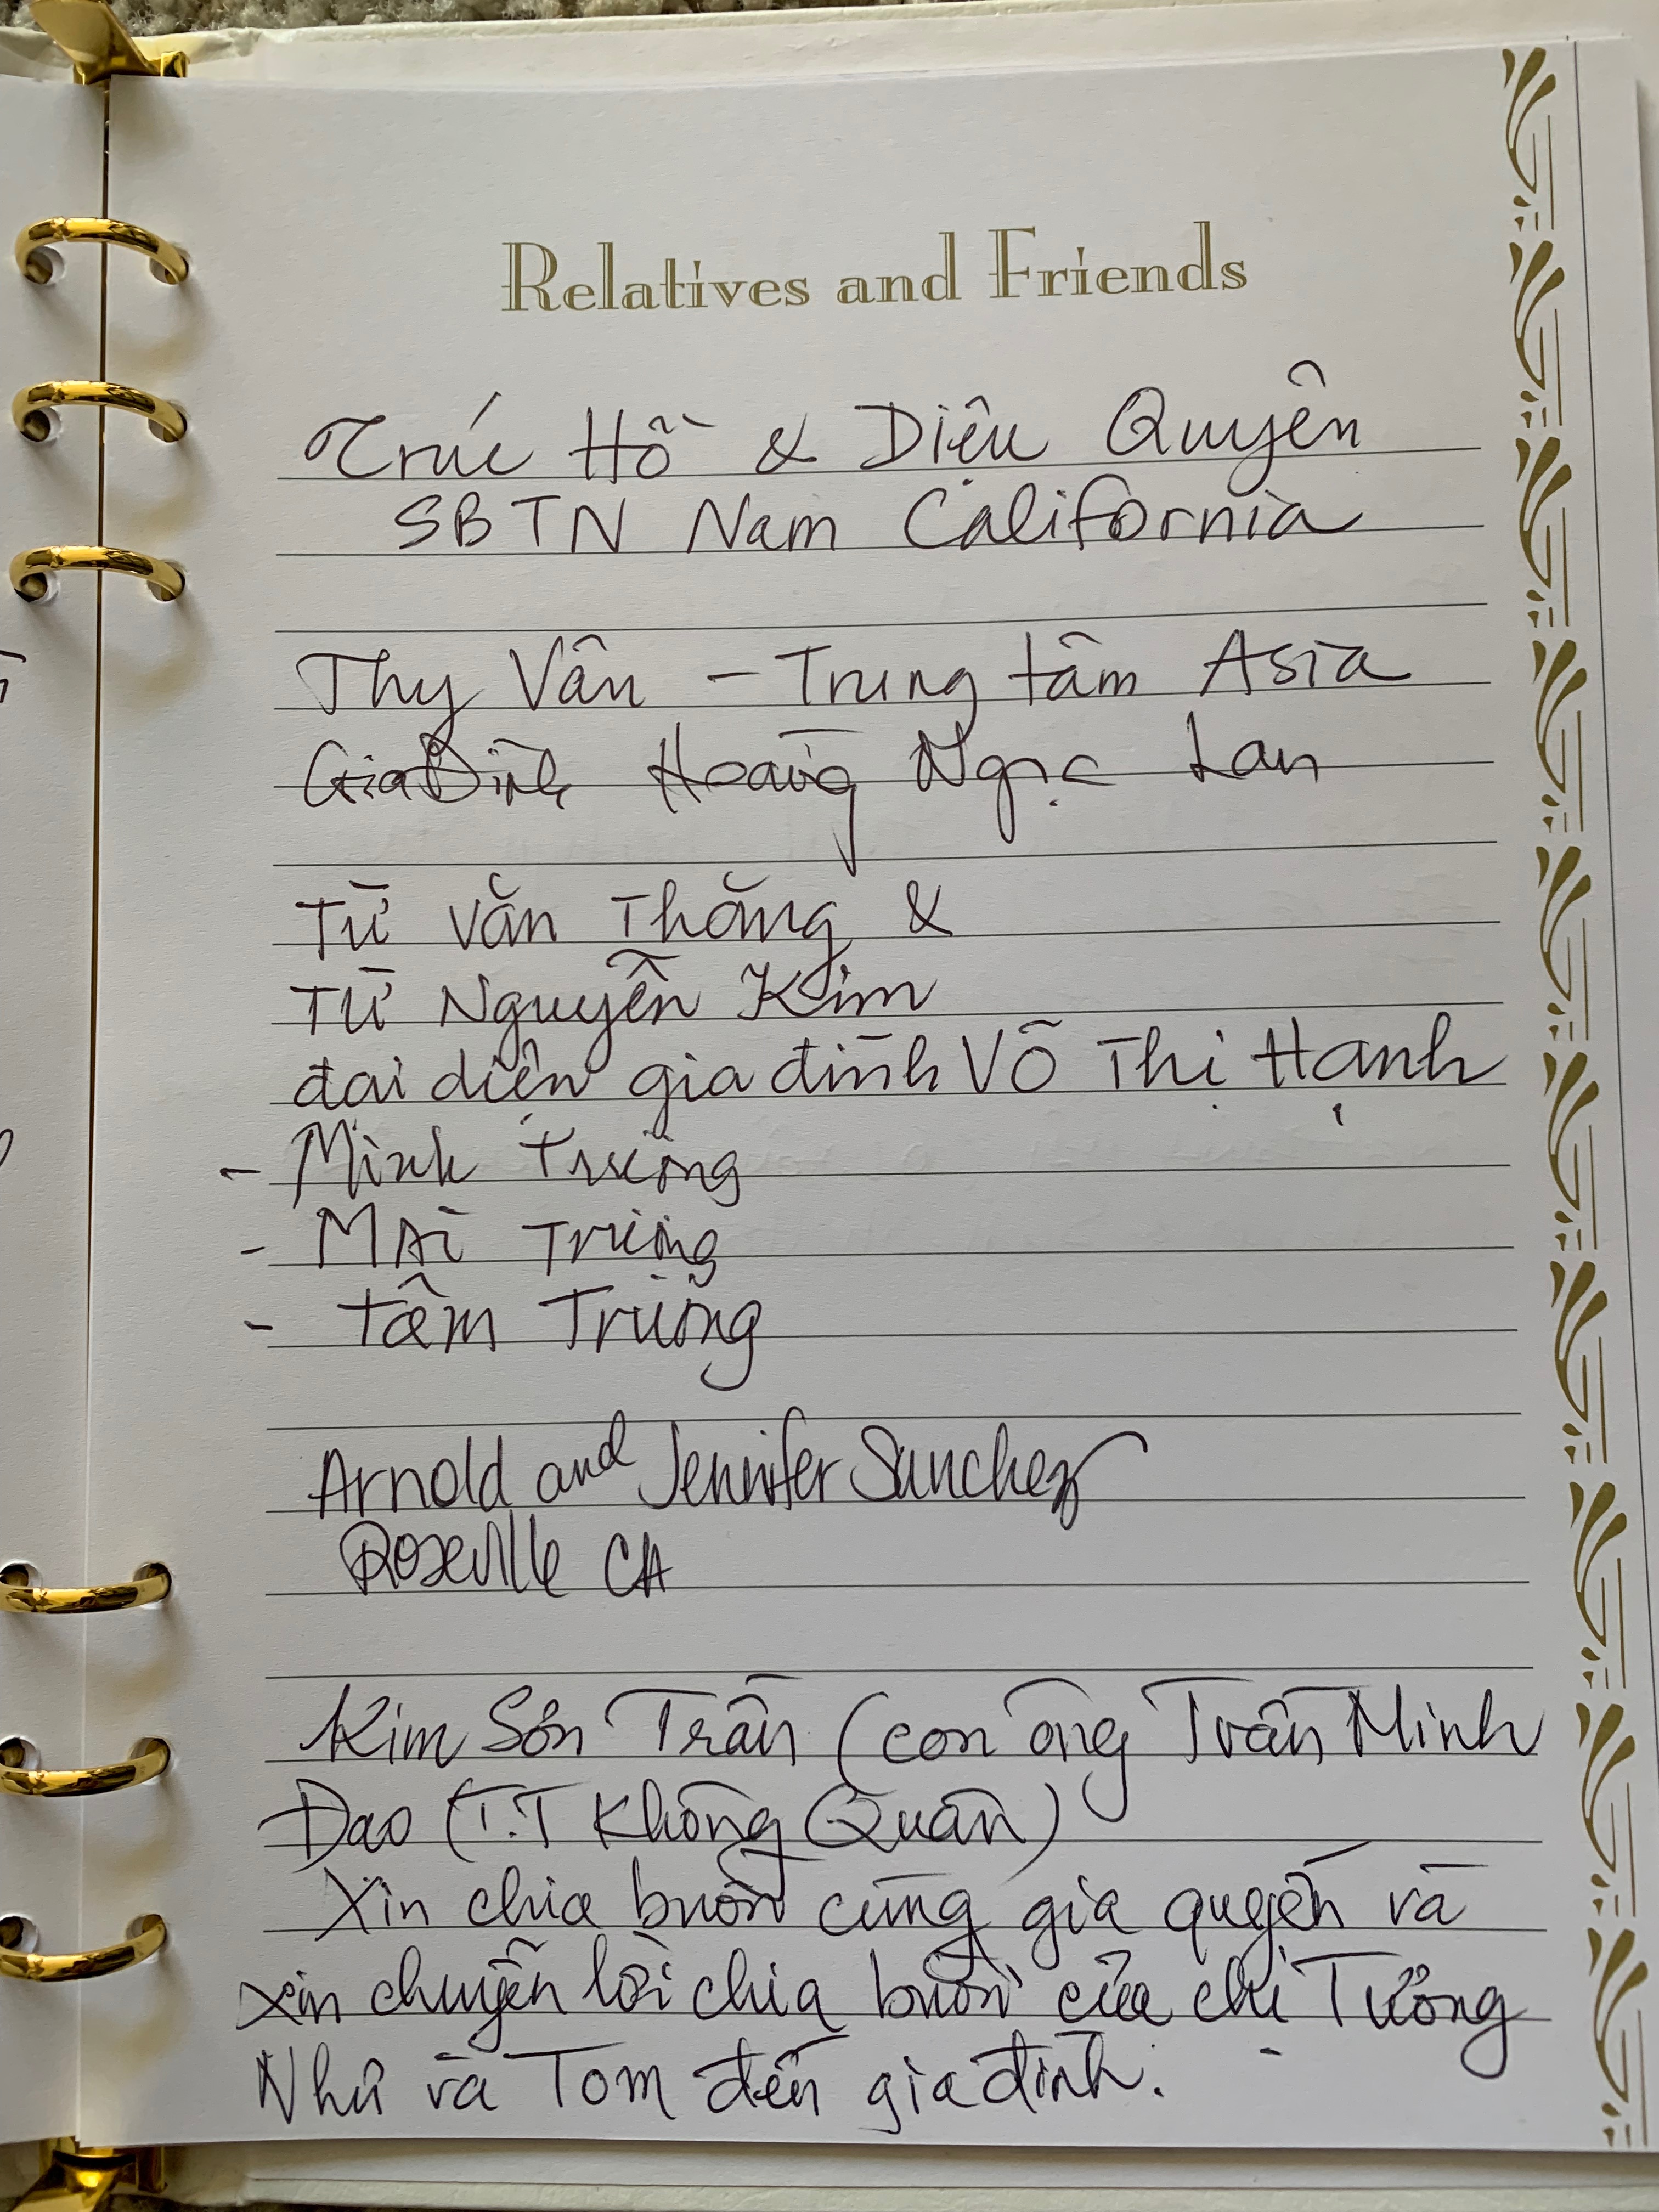 Relatives and Friends
Trúc Hồ & Diệu Quyên
SBTN Nam California
Thy Vân - Trung tâm Asia
Gia Đình Hoàng Ngọc Lan
Từ Văn Thắng &
Từ Nguyễn Kim
đại diện gia đình Võ Thị Hạnh
- Minh Trương
- Mai Trương
- Tâm Trương
Arnold and Jennifer Sanchez
Roseville CA
Kim Sơn Trần (con ông Trần Minh
Đạo (T.T Không Quân)
Xin chia buồn cùng gia quyến và
xin chuyển lời chia buồn của chị Tường
Như và Tom đến gia đình.